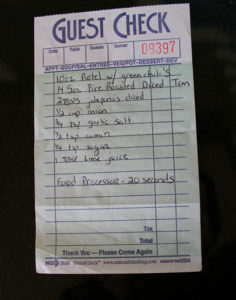 GUEST CHECK
Date Table Guests Server
09397
APPT-SOUP/SAL-ENTREE-VEG/POT-DESSERT-BEV
10oz Rotel w/ green chili's
14.5oz Fire Roasted Diced Tom
2 TBSPS jalepno's diced
1/2 cup onion
3/4 tsp garlic salt
1/2 tsp cumin
1/4 tsp sugar
1 TBSP Lime juice
Food Processor - 20 seconds
Tax
Total
Thank You — Please Come Again
GUESTCHECK™ www.nationalchecking.com
USA